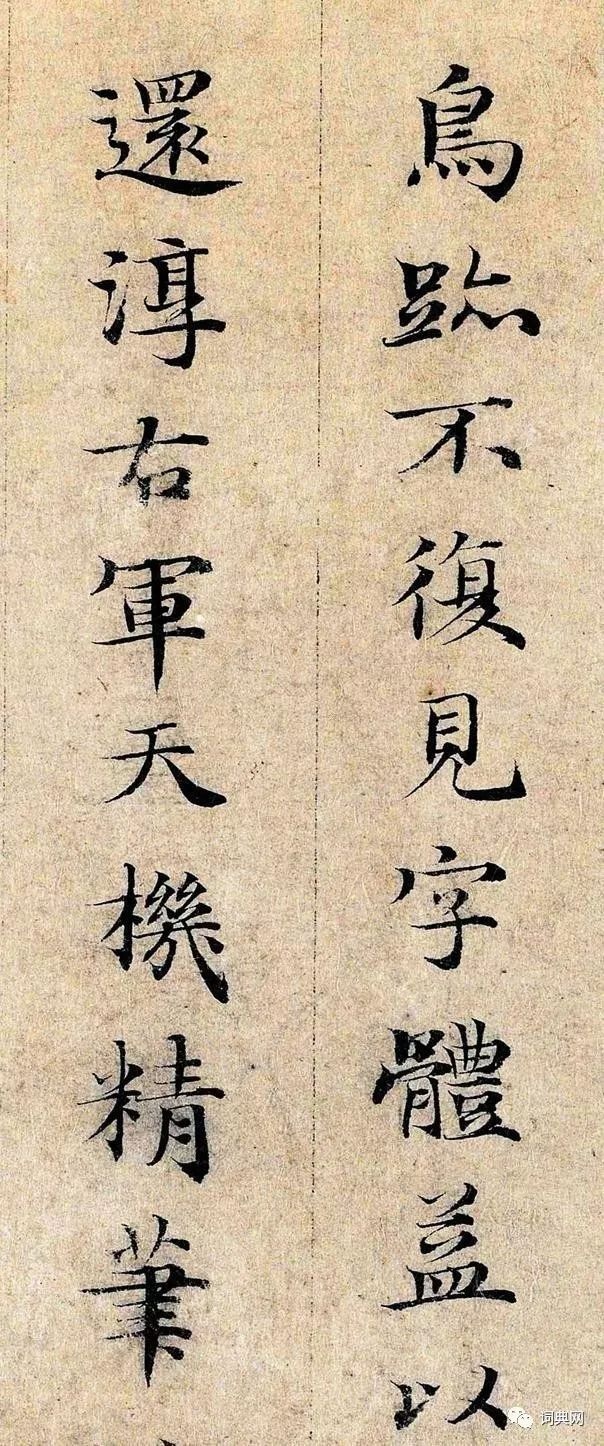 鳥跡不復見字體益以
還淳右軍天機精筆
词典网